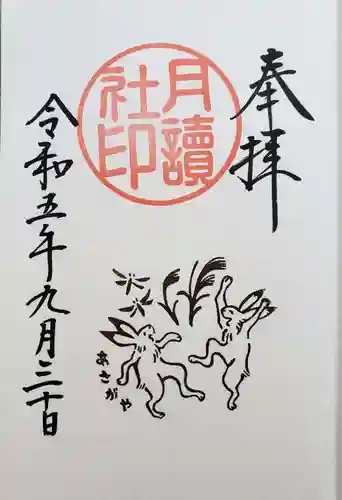 奉拝
月讀
社印
令和五年九月三十日
あさがや